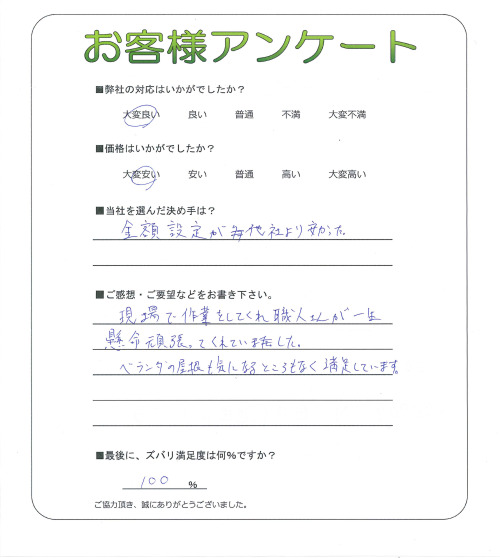 お客様アンケート
■弊社の対応はいかがでしたか？
大変良い 良い 普通 不満 大変不満
■価格はいかがでしたか？
大変安い 安い 普通 高い 大変高い
■当社を選んだ決め手は？
金額設定が 他社より安かった。
■ご感想・ご要望などをお書き下さい。
現場で作業をしてくれ職人さんが一生
懸命頑張ってくれていました。
ベランダの屋根も気になるところもなく満足しています。
■最後に、ズバリ満足度は何％ですか？
100 %
ご協力頂き、誠にありがとうございました。